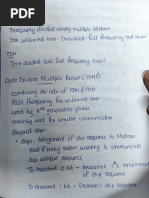 Frequency divided among multiple stations
for unlimited time. Drawback - full frequency not avail
TDM
Time divided but full frequency avail
Code Division Multiple Access (CDMA)
combining the adv of TDM & FDM
Full Frequency for unlimited time
used by 3rd generation phone
mainly used for satellite communication
Several steps
1 step: Assignment of chip sequence to station
and if every station wanting to communicate
has unique sequence
To transmit 0 bit - transmit 1's complement
of chip sequence
To transmit 1 bit - transmit chip sequence